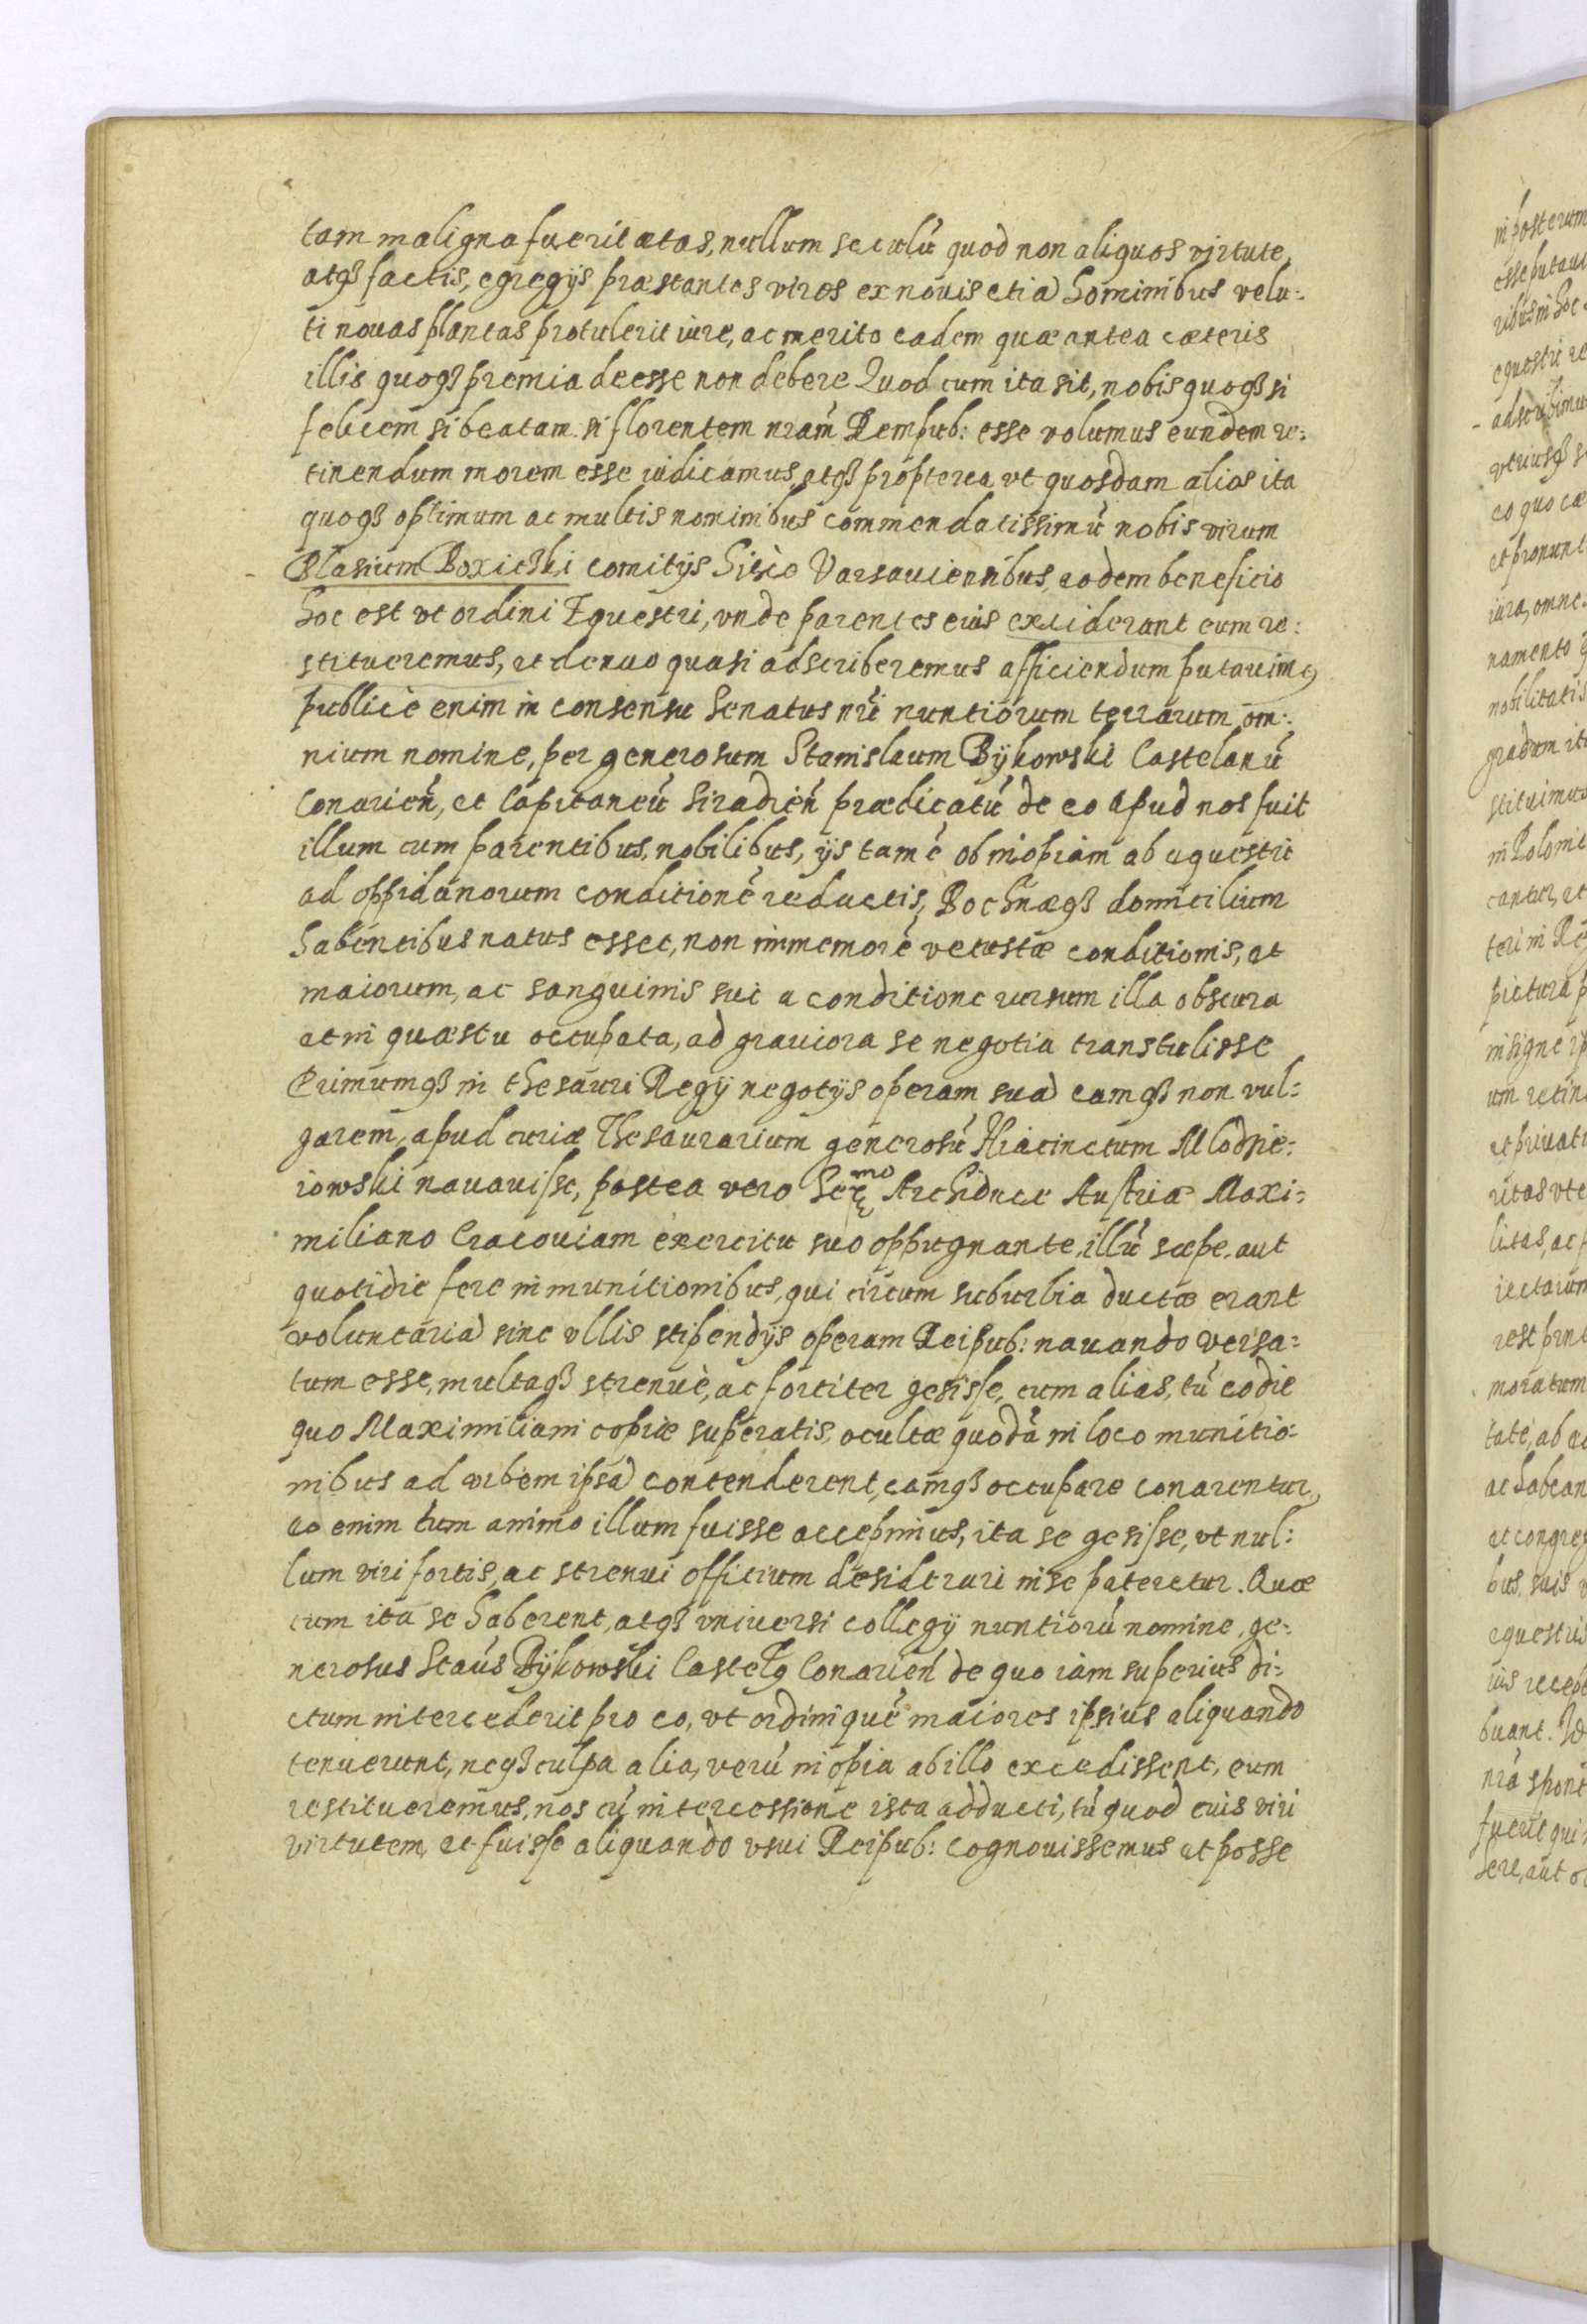 tam maligna fuerit ætas, nullum seculú quod non aliquos virtute,
atqȝ factis, egregijs præstantes viros ex novis etiā hominibus velu:
ti novas plantas protulerit iure, ac merito eadem quæ antea cæteris
illis quoqȝ premia deesse non debere Quod cum ita sit, nobis quoqȝ si
felicem si beatam si florentem nrām Rempub: esse volumus eundem re:
tinendum morem esse iudicamus, atqȝ propterea vt quosdam alios ita
quoqȝ optimum ac multis nominibus commendatissimú nobis virum
Blasium Boxicki comitijs hisce Varsauiensibus, eodem beneficio
hoc est vt ordini Equestri, vnde parentes eius exciderant eum re:
stitueremus, et denuo quasi adscriberemus afficiendum putauimꝰ
publicè enim in consensu Senatus nrī nuntiorum terrarum om:
nium nomine, per generosum Stanislaum Bÿkowski Castelanú
Conarień, et Capitaneú Siradień prædicatú de eo apud nos fuit
illum cum parentibus, nobilibus, ijs tamé ob inopiam ab equestri
ad oppidanorum conditioné reductis, Bochnæqȝ domicilium
habentibus natus esset, non immemoré vetustæ conditionis, et
maiorum, ac sanguinis sui a conditione rursum illa obscura
et in quæstu occupata, ad graviora se negotia transtulisse
Primumqȝ in thesauri Regij negotijs operam suā eamqȝ non vul:
garem, apud curiæ Thesaurarium generosú Hiacinctum Mlodzie:
iowski navavisse, postea vero Serᵐᵒ Archiduce Austriæ Maxi:
miliano Cracoviam exercitu suo oppugnante, illú sæpe, aut
quotidie fere in munitionibus, qui circum suburbia ductæ erant
voluntariā sine vllis stipendijs operam Reipub: navando versa:
tum esse, multaqȝ strenuè, ac fortiter gesisse, cum alias, tú eo die
quo Maximiliani copiæ superatis, ocultæ quodā in loco munitio:
nibus ad vrbem ipsā contenderent, eamqȝ occupare conarentur,
eo enim tum animo illum fuisse accepimus, ita se gesisse, vt nul:
lum viri fortis, ac strenui officium desiderari in se pateretur. Quæ
cum ita se haberent, atqȝ vniversi collegij nuntiorú nomine, ge:
nerosus Staús Bÿkowski Castelꝰ Conarień de quo iam superius di:
ctum intercederit pro eo, vt ordini qué maiores ipsius aliquando
tenuerunt, neqȝ culpa alia, verú inopia ab illo excedissent, eum
restitueremus, nos cú intercessione ista adducti, tú quod euis viri
virtutem, et fuisse aliquando vsui Reipub: cognouissemus et posse